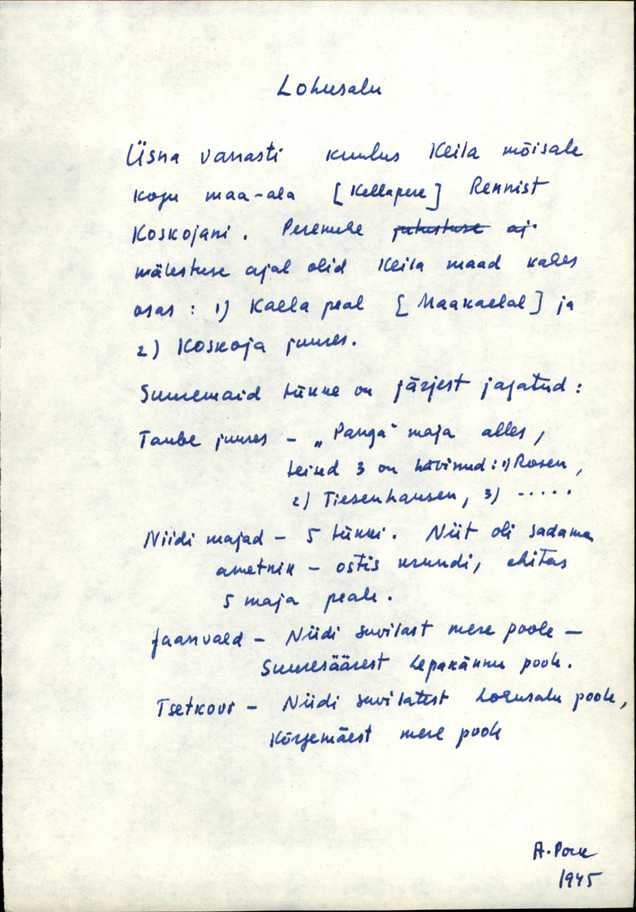 Lohusalu
Üsna varasti kuulus Keila mõisale
kogu maa-ala [Kellapere] Rennist
Koskojani. Peremehe juhustuse aj.
mälestuse ajal olid Keila maad kahes
osas : 1) Kaela peal [Maakaelal] ja
2) Koskoja juures.
Suuremaid tükke on järjest jagatud :
Taube juures – „Panga" maja alles,
teised 3 on hävinud : 1) Rosen,
2) Tiesenhausen, 3) .....
Niidi majad – 5 tükki. Niit oli sadama
ametnik – ostis krundi, ehitas
5 maja peale.
Jaanvald – Niidi suvilast mere poole –
Suuresäärest Lepakännu poole.
Tsetkovr – Niidi suvilatest Lohusalu poole,
Kõrgemäest mere poole
A. Pork
1945